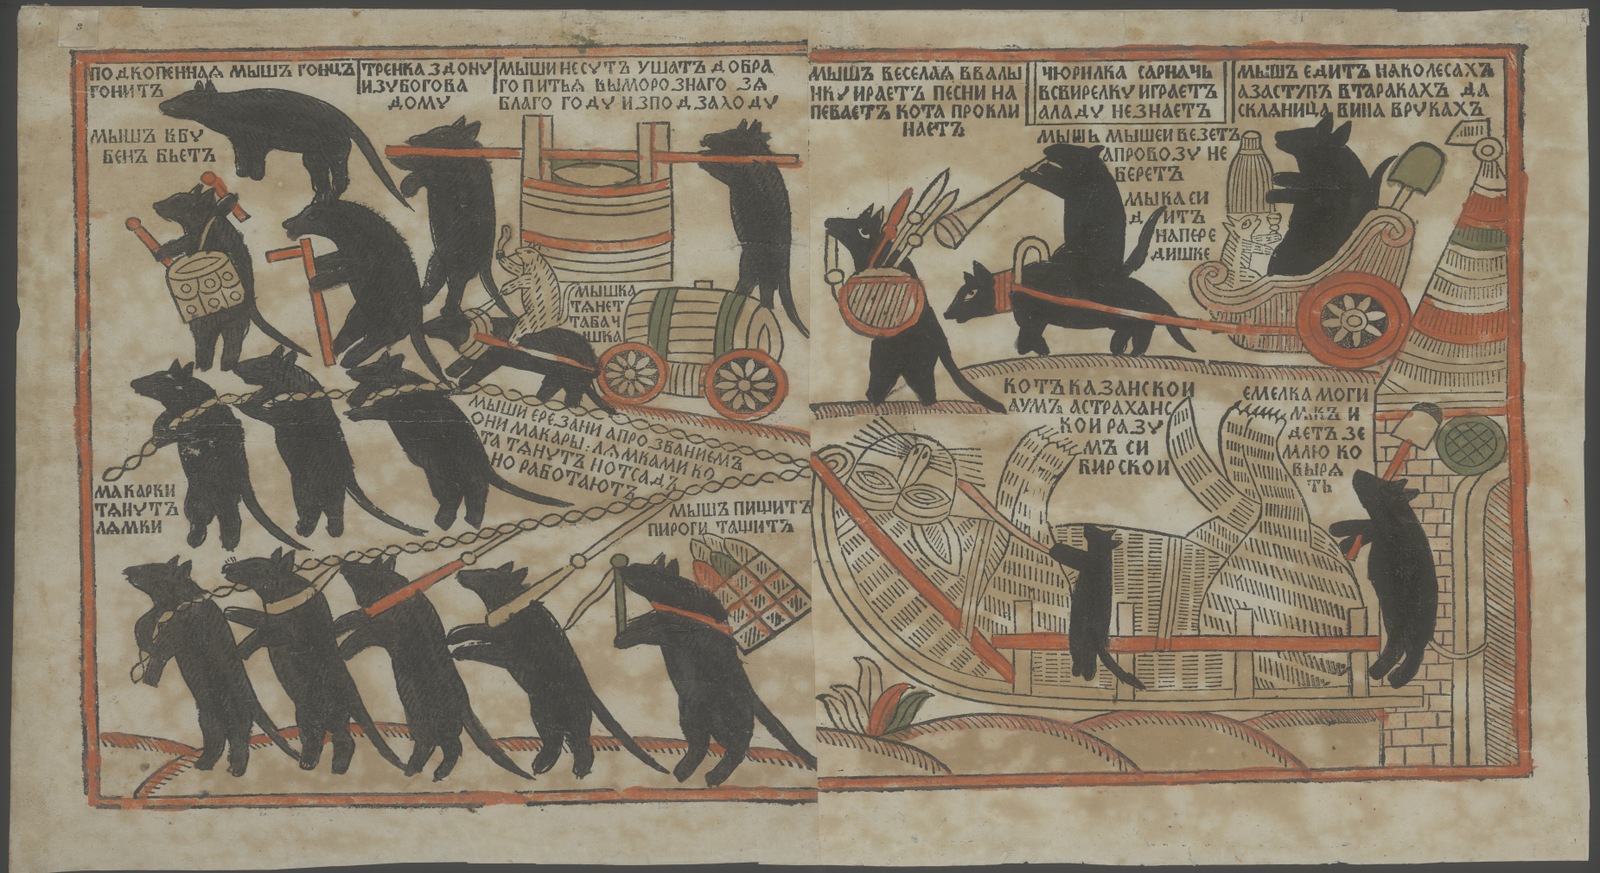 ПОДКОПЕННАЯ МЫШЪ ГОНЦЪ
ГОНИТЪ
ТРЕНКА З ДОНУ
ИЗУБОГОВА
ДОМУ
МЫШИ НЕСУТЪ УШАТЪ ДОБРА
ГО ПИТЬЯ ВЫМОРОЗНАГО ЗА
БЛАГО ГОДУ ИЗПОДЗАХОДУ
МЫШЪ ВБУ
БЕНЪ БЬЕТЪ
МЫШКА
ТЯНЕТ
ТАБАЧ
ИШКА
МЫШИ ЕРЕЗАНИ АПРОЗВАНИЕМЪ
ОНИ МАКАРЫ. ЛЯМКАМИ КО
ТА ТЯНУТЪ НОТСАДЪ
НО РАБОТАЮТЪ
МАКАРКИ
ТЯНУТЪ
ЛЯМКИ
МЫШЪ ПИШИТЪ
ПИРОГИ ТАЩИТЪ
МЫШЪ ВЕСЕЛАЯ ВВАЛЫ
НКУ ИРАЕТЪ ПЕСНИ НА
ПЕВАЕТЪ КОТА ПРОКЛИ
НАЕТЪ
ЧЮРИЛКА САРНАЧЬ
ВСВИРЕЛКУ ИГРАЕТЪ
АЛАДУ НЕЗНАЕТЪ
МЫШЪ ЕДИТЪ НАКОЛЕСАХЪ
АЗАСТУПЪ ВТАРАКАХЪ ДА
СКЛЯНИЦА ВИНА ВРУКАХЪ
МЫШЬ МЫШЕИ ВЕЗЕТЪ
АПРОВОЗУ НЕ
БЕРЕТЪ
МЫКА СИ
ДИТЪ
НАПЕРЕ
ДИШКЕ
КОТЪ КАЗАНСКОИ
АУМЪ АСТРАХАНС
КОИ РАЗУ
МЪ СИ
БИРСКОИ
ЕМЕЛКА МОГИ
ЛЯКЪ И
ДЕТЪ ЗЕ
МЛЮ КО
ВЫРЯ
ТЬ